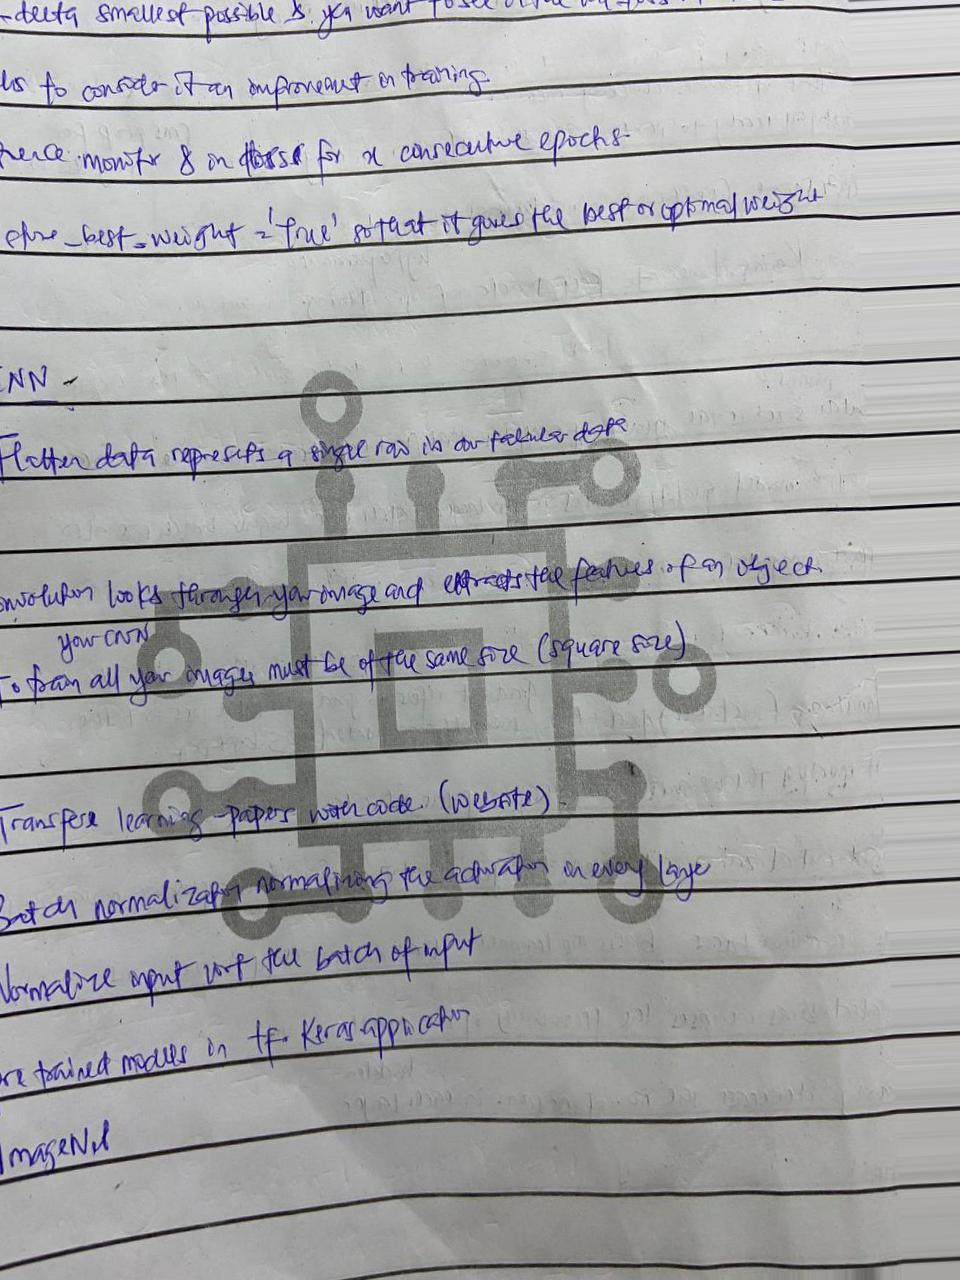 -delta smallest possible & you want to see
to consider it an improvement in training.
monitor & in for x consecutive epochs.
_best_weight = 'True' so that it gives the best or optimal weight
NN -
Flatten data represents a single row in our tabular data
looks through your image and extracts the features of an object.
your CNN
To train all your images must be of the same size (square size)
Transfere learning - papers with code. (website).
Batch normalization normalizing the activation in every layer
Normalize input wrt the batch of input
trained models in tf. Keras.application
ImageNet